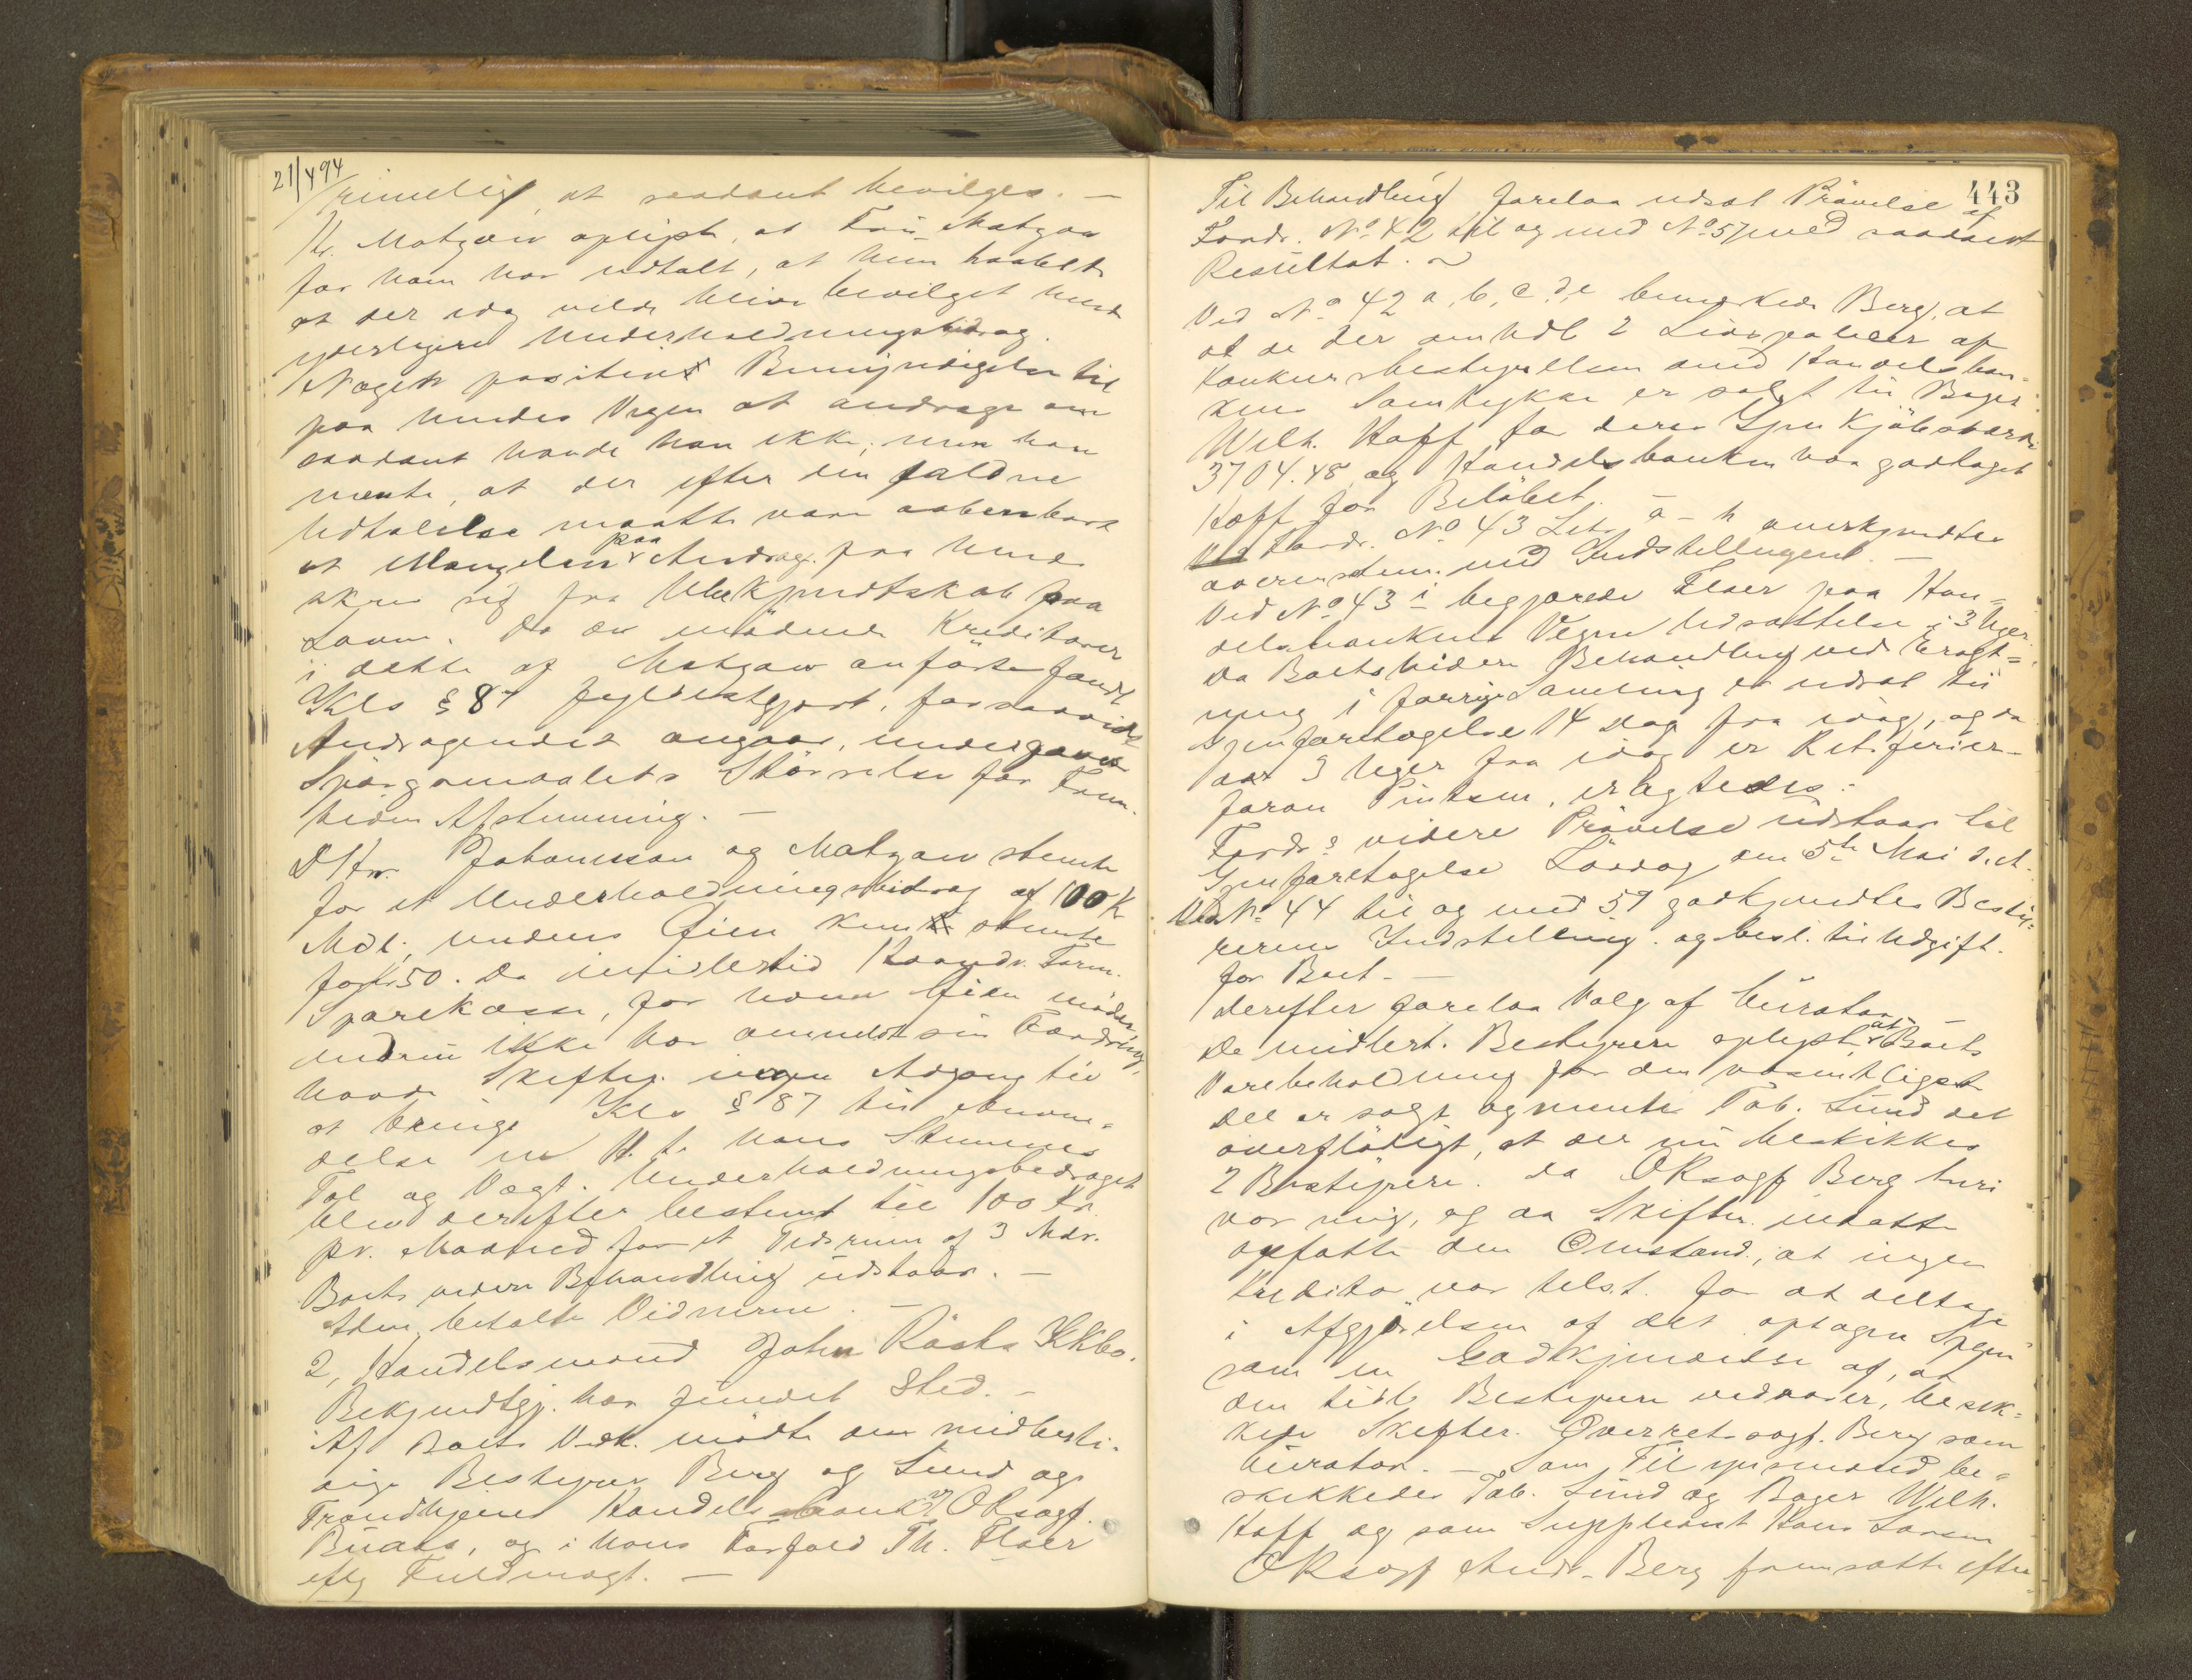 21/4 94
rimeligt, at saadant bevilges. –
Hr. Matzow oplyste, at Fru Matzow
for ham har udtalt, at hun haabede
at der idag vilde blive bevilget hende
yderligere Underholdningsbidrag.
Nogen positiv Bemyndigelse til
paa hendes Vegne at andrage om
saadant havde han ikke, men han
mente, at der efter den faldne
Udtalelse maatte være aabenbart
at Mangelen paa Andrag. fra hende
skrev sig fra Ubekjendtskab paa
Loven. Da de mødende Kreditorer
i dette af Matzow anførte fandt
Kls § 87 fyldestgjort, forsaavidt
Andragendet angaar, undergaves
Spørgsmaalets Størrelse for Frem-
tiden Afstemning. –
DHrr. Johannsson og Matzow stemte
for et Underholdningsbidrag af 100 K
Mdl., medens Gien kun stemte
for Kr. 50. Da imidlertid Haandv. Foren.
Sparekasse, for hvem Gien møder,
endnu ikke har anmeldt sin Fordring,
havde Skifter. ingen Adgang til
at bringe Kls § 87 til Anven-
delse m. H. t. hans Stemmes
Tal og Vægt. Underholdningsbidraget
blev derefter bestemt til 100 Kr.
pr. Maaned for et Tidsrum af 3 Mdr.
Boets videre Behandling udstaar. –
Adm. betalte Vidnerne. –
2, Handelsmand John Røske Kkbo.
Bekjendtgj. har fundet Sted. –
Af Boets Vedk. mødte den midlerti-
dige Bestyrer Berg og Lund og
Trondhjems Handelsbank v/ ORsagf.
Buaas, og i hans Forfald Th. Floer
eflg Fuldmagt. –
443
Til Behandling forelaa udsat Prøvelse af
Fordr. No 42 til og med No 57 med saadant
Resultat. ~
Ved No 42 a, b, c, d, e bemerkede Berg, at
at de der omhdl 2 Livspolicer af
Konkursbestyrelsen med Handelsban-
kens Samtykke er solgt til Bager
Wilh. Hoff for deres Gjenkjøbsværdi
3704.48 og Handelsbanken har godtaget
Hoff for Beløbet.
Ved Fordr. No 43 Litr a – h anerkjendtes
overensstem. med Indstillingen. –
Ved No 43 i begjærede Floer paa Han-
delsbankens Vegne Udsættelse i 3 Uger.
Da Boets videre Behandling ved Eragt-
ning i forrige Samling er udsat til
Gjenforetagelse 14 Dag fra idag, og da
der 3 Uger fra idag er Retsferier
foran Pintsen, eragtedes:
Fordrs videre Prøvelse udstaar til
Gjenforetagelse Lørdag den 5te Mai d. A.
Ved No 44 til og med 57 godkjendtes Besty-
rerens Indstilling. og besl. til Udgift
for Boet. –
Derefter forelaa Valg af Curator –
De midlert. Bestyrere oplyste, at Boets
Varebeholdning for den væsentligste
Del er solgt og mente Fab. Lund det
overflødigt, at der nu beskikkes
2 Bestyrere. Da ORsagf Berg heri
var enig, og da Skifter. maatte
opfatte den Omstand., at ingen
Kreditor var tilst. for at deltage
i Afgjørelsen af det opta​gne Spgm
som en Godkjendelse af, at
den tidl. Bestyrer vedvarer, beskik-
kede Skifter. Overretssagf. Berg som
Curator. – Som Tilsynsmænd be-
skikkedes Fab. Lund og Bager Wilh.
Hoff og som Suppleant Hans Larsen
ORsagf Andr. Berg fremsatte efter-